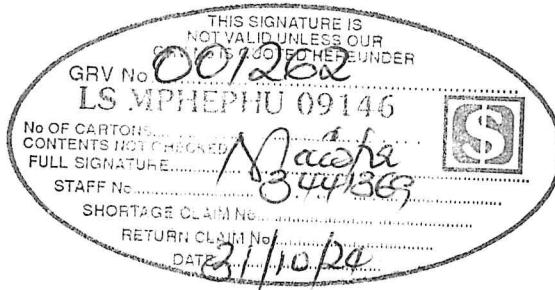 THIS SIGNATURE IS
NOT VALID UNLESS OUR
GRV No IS QUOTED HEREUNDER
GRV No. 001262
LS MPHEPHU 09146
S
No OF CARTONS
CONTENTS NOT CHECKED
FULL SIGNATURE
STAFF No 3441369
SHORTAGE CLAIM No.
RETURN CLAIM No
DATE 31/10/24